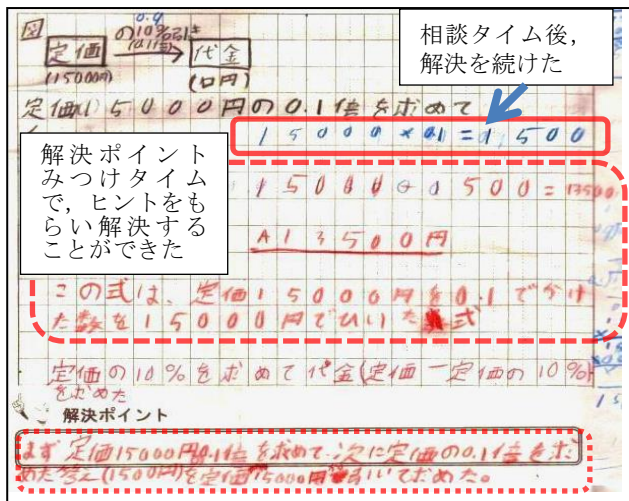 図
0.9
の10%引き
定価 → 代金
(15000円)
(□円)
相談タイム後，
解決を続けた
定価15000円の0.1倍を求めて
15000×0.1=1500
解決ポイント
みつけタイム
で，ヒントをも
らい解決する
ことができた
15000-1500=13500
A13500円
この式は、定価15000円を0.1でかけ
た数を15000円でひいた 式
定価の10%を求めて代金(定価-定価の10%)
を求めた
解決ポイント
まず定価15000円0.1倍を求めて、次に定価の0.1倍を求
めた答え(1500円)を定価15000円 引いて求めた。